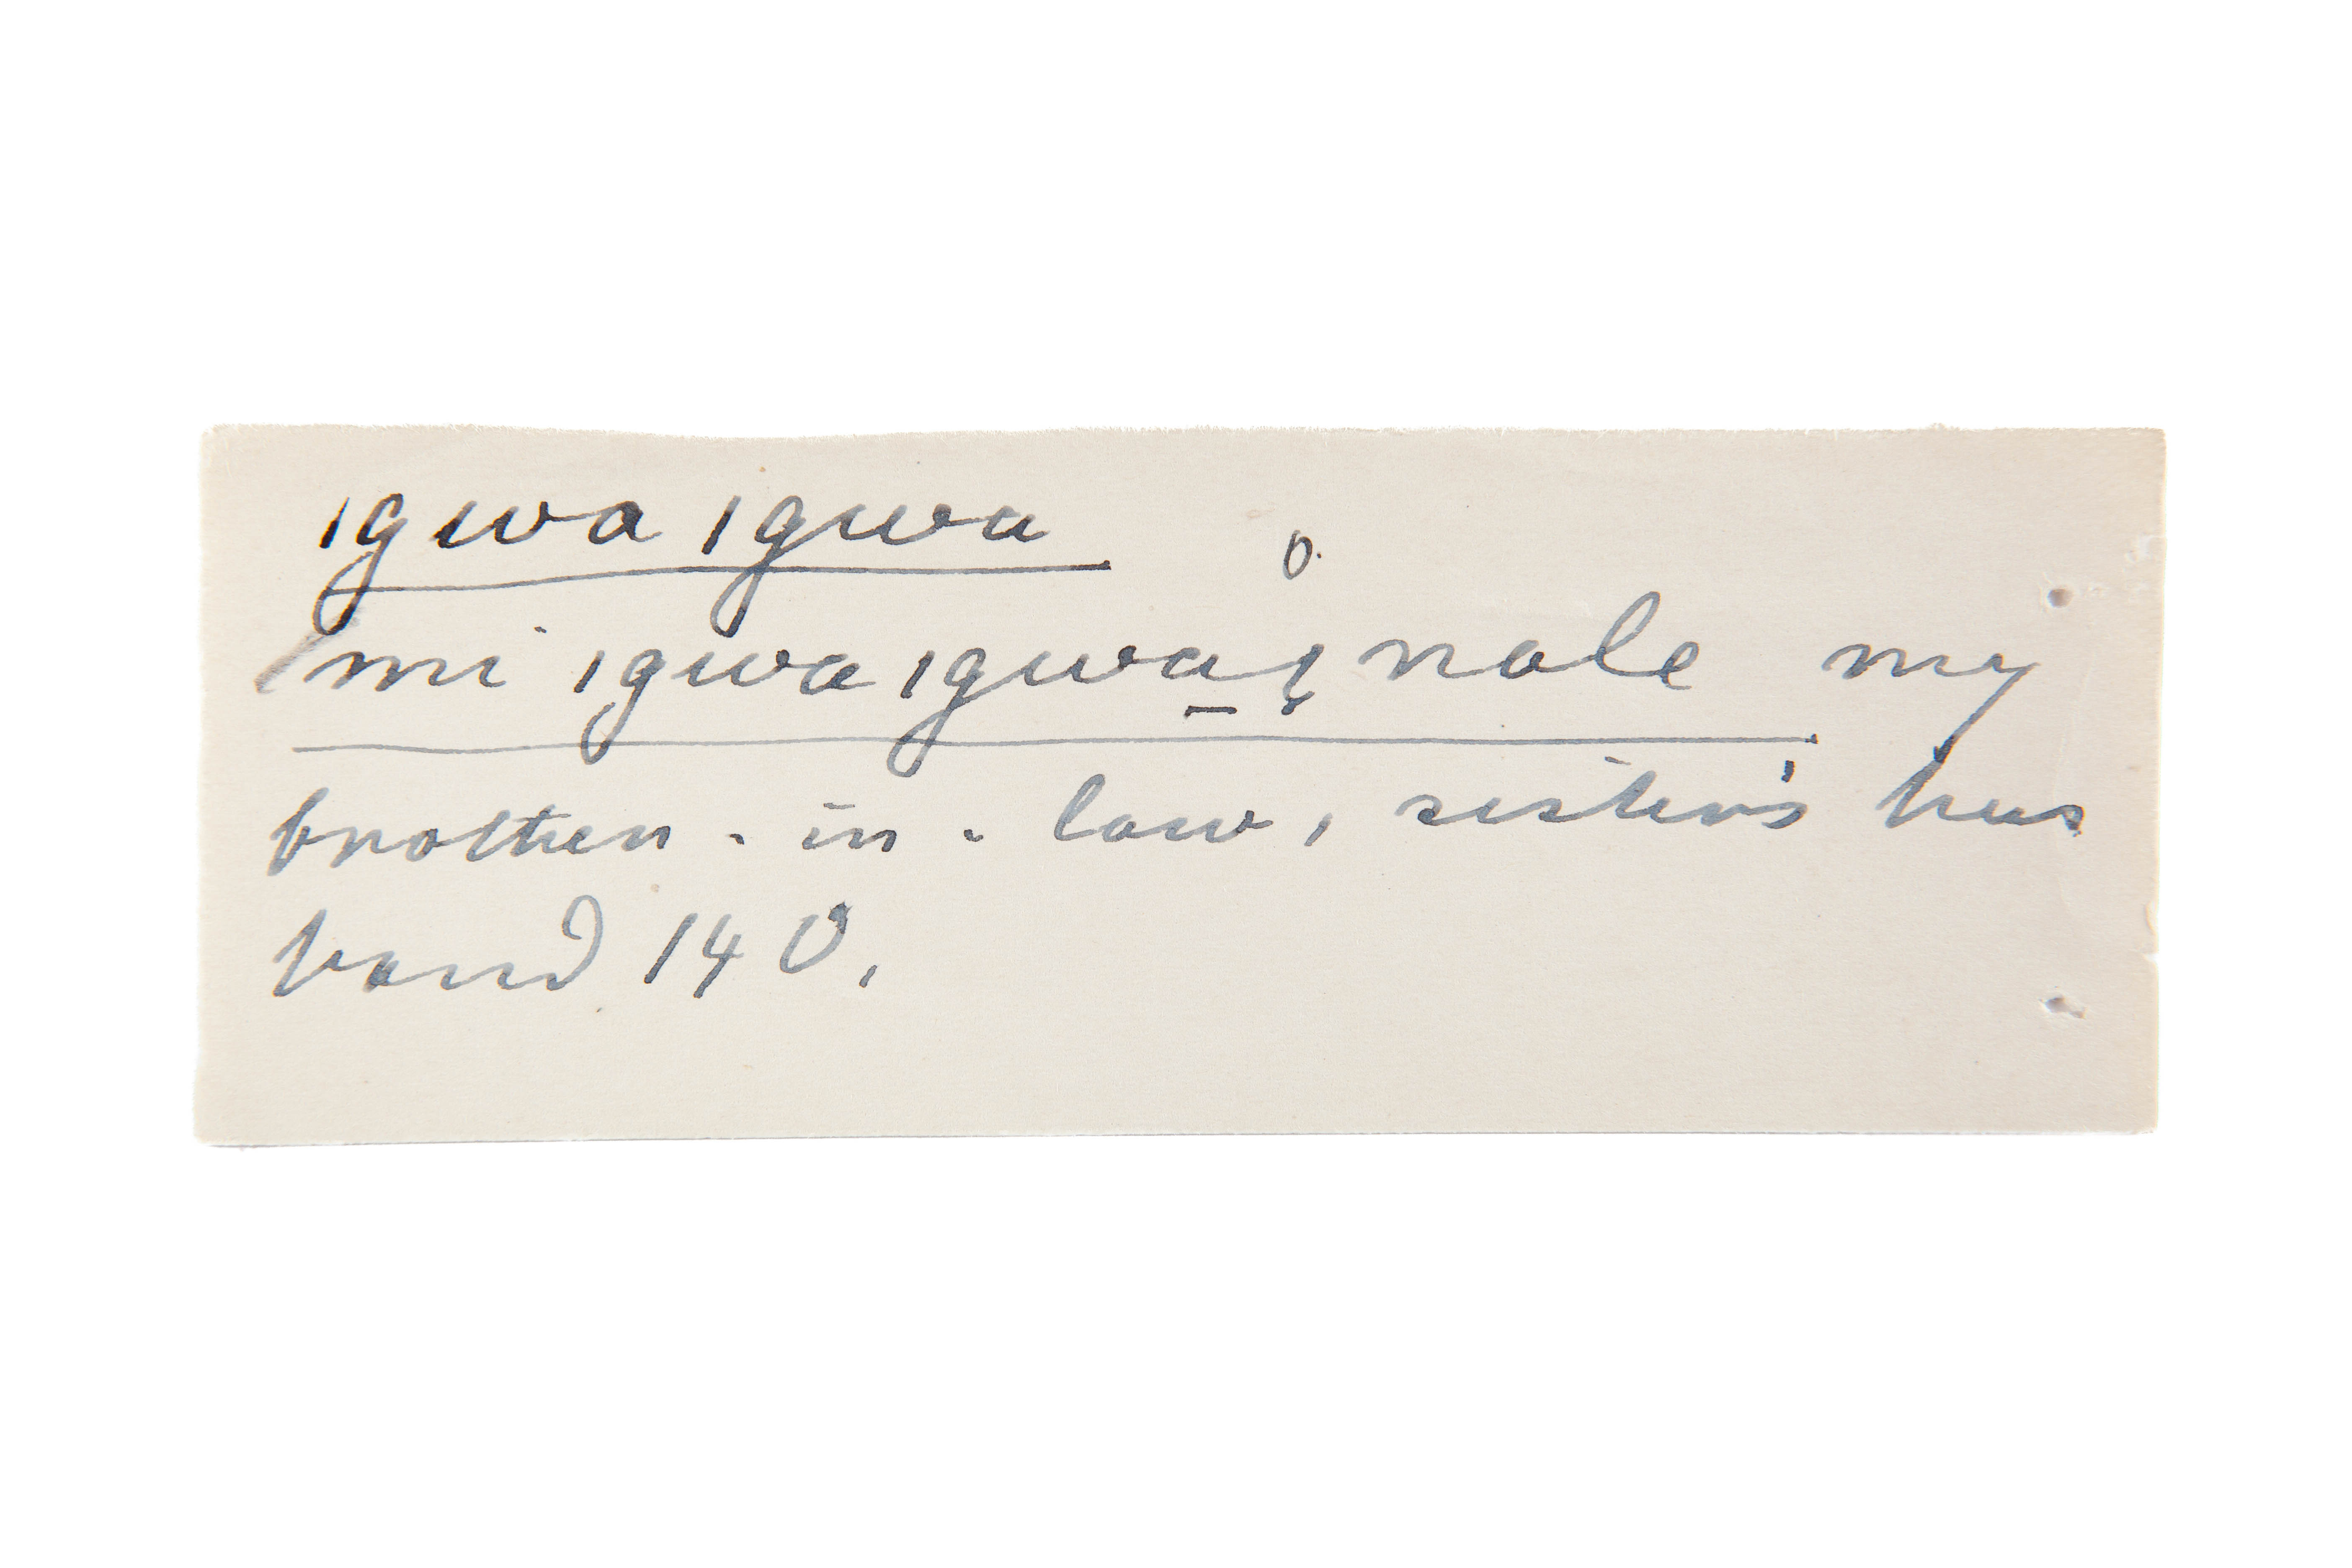 igwa igwa
mi igwa igwa̱ị nale my
brother-in-law, sister's hus
band 140.